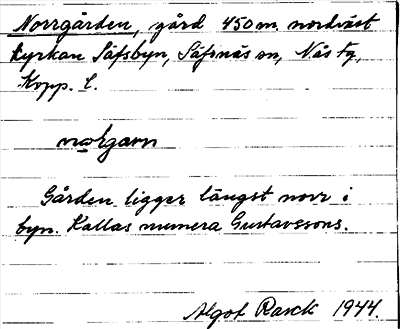 Norrgården, gård 450 m. nordväst
kyrkan Säfsbyn, Säfsnäs sn, Nås tg,
Kopp. l.
nọrgarn
Gården ligger längst norr i
byn. Kallas numera Gustavssons.
Algot Rasck 1944.